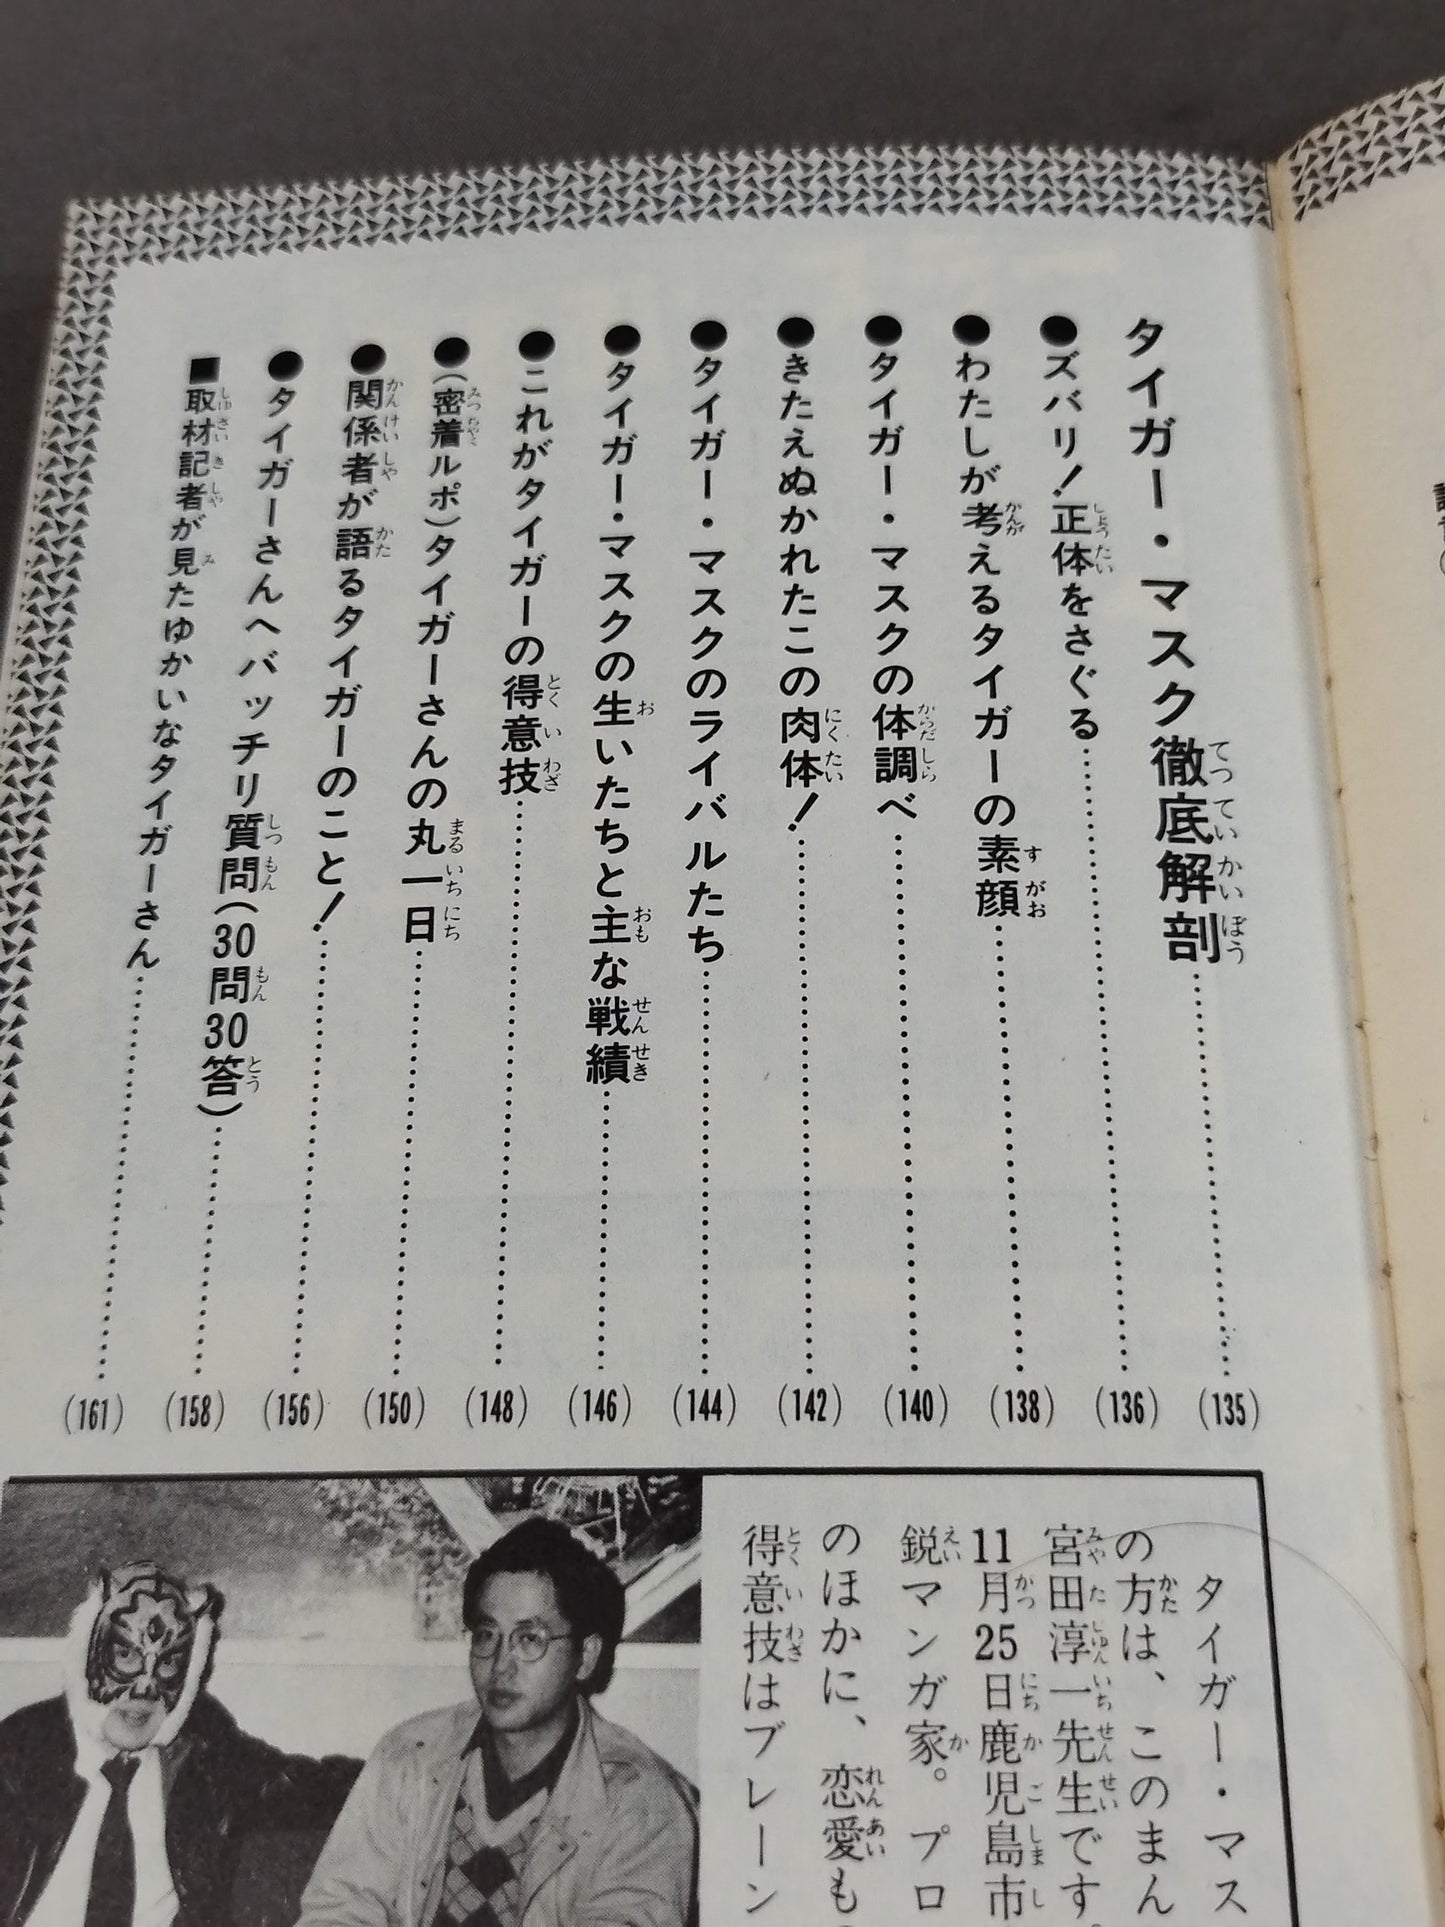 タイガー・マスク徹底解剖……(135)
●ズバリ!正体をさぐる……(136)
●わたしが考えるタイガーの素顔……(138)
●タイガー・マスクの体調べ……(140)
●きたえぬかれたこの肉体!……(142)
●タイガー・マスクのライバルたち……(144)
●タイガー・マスクの生いたちと主な戦績……(146)
●これがタイガーの得意技……(148)
●(密着ルポ)タイガーさんの丸一日……(150)
●関係者が語るタイガーのこと!……(156)
●タイガーさんへバッチリ質問(30問30答)……(158)
■取材記者が見たゆかいなタイガーさん……(161)
タイガー・マス
の方は、このまん
宮田淳一先生です。
11月25日鹿児島市
鋭マンガ家。プロ
のほかに、恋愛も
得意技はブレーン